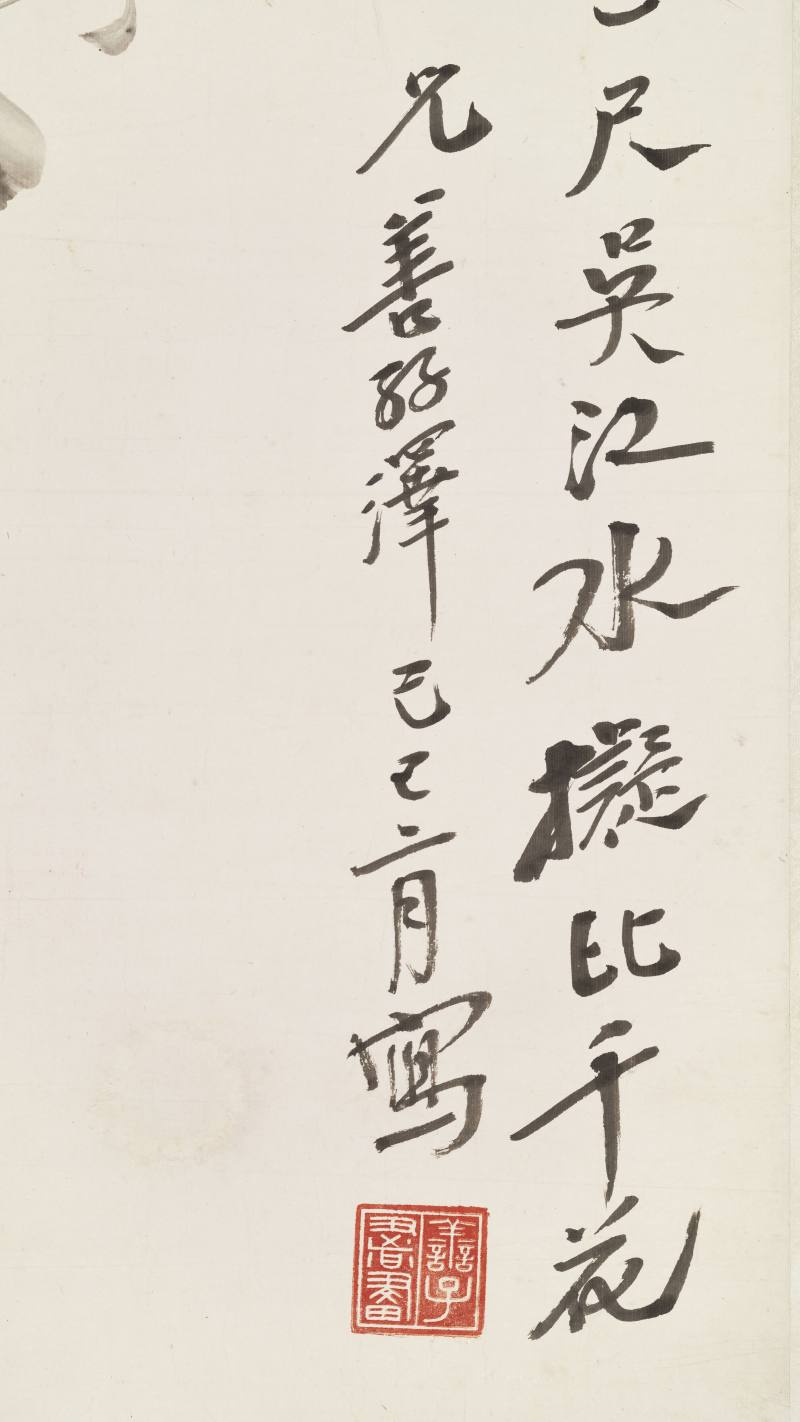 尺吳江水擬比千花
兄 善孖澤 己巳二月寫
譱子書畫